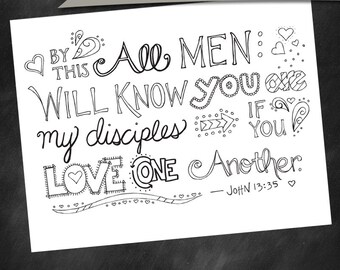 BY THIS All MEN
WILL KNOW YOU are
my disciples IF YOU
LOVE ONE Another.
— JOHN 13:35